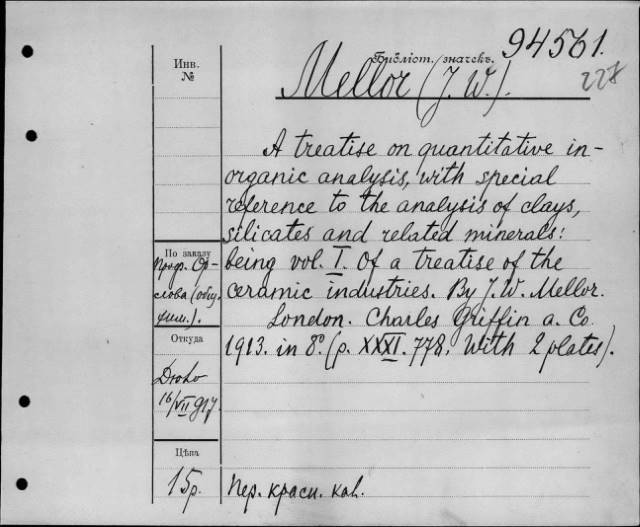 94561.
Инв.
№
Библіот. значекъ.
228
Mellor (J. W.).
A treatise on quantitative in-
organic analysis, with special
reference to the analysis of clays,
silicates and related minerals:
being vol. I. Of a treatise of the
ceramic industries. By J. W. Mellor.
London. Charles Griffin a. Co.
1913. in 8°. (p. XXXI. 778. With 2 plates).
По заказу
Проф. Ор-
лова (общ.
хим.).
Откуда
16/VII 917.
Цѣна
15 р.
Пер. красн. кал.